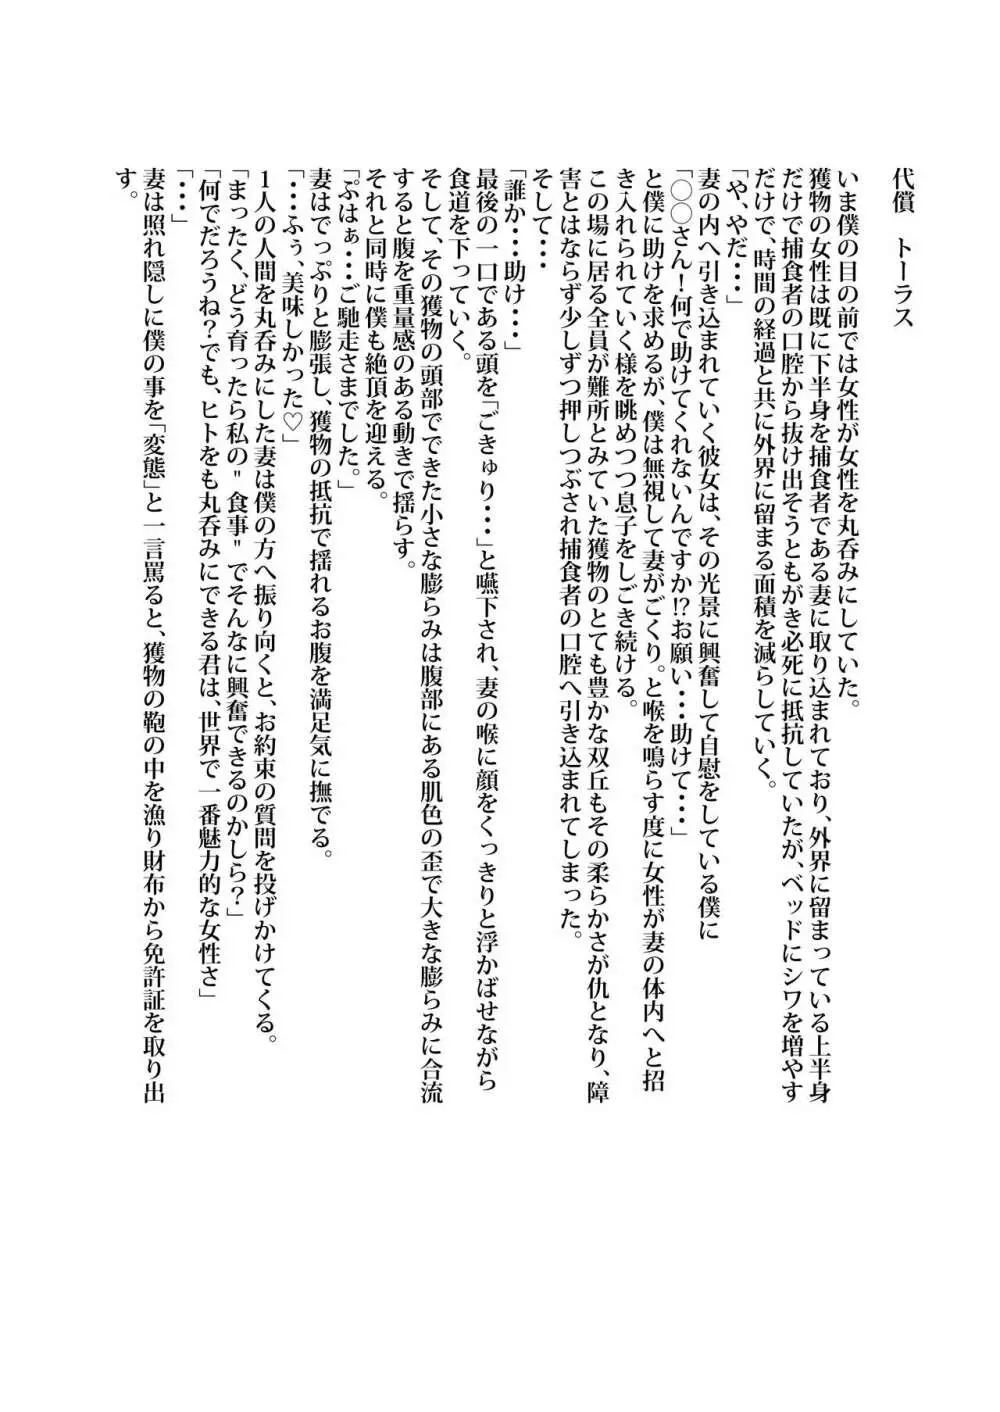 代償　トーラス
いま僕の目の前では女性が女性を丸呑みにしていた。
獲物の女性は既に下半身を捕食者である妻に取り込まれており、外界に留まっている上半身
だけで捕食者の口腔から抜け出そうともがき必死に抵抗していたが、ベッドにシワを増やす
だけで、時間の経過と共に外界に留まる面積を減らしていく。
「や、やだ・・・」
妻の内へ引き込まれていく彼女は、その光景に興奮して自慰をしている僕に
「〇〇さん！何で助けてくれないんですか!?お願い・・・助けて・・・」
と僕に助けを求めるが、僕は無視して妻がごくり。と喉を鳴らす度に女性が妻の体内へと招
き入れられていく様を眺めつつ息子をしごき続ける。
この場に居る全員が難所とみていた獲物のとても豊かな双丘もその柔らかさが仇となり、障
害とはならず少しずつ押しつぶされ捕食者の口腔へ引き込まれてしまった。
そして・・・
「誰か・・・助け・・・」
最後の一口である頭を『ごきゅり・・・』と嚥下され、妻の喉に顔をくっきりと浮かばせながら
食道を下っていく。
そして、その獲物の頭部でできた小さな膨らみは腹部にある肌色の歪で大きな膨らみに合流
すると腹を重量感のある動きで揺らす。
それと同時に僕も絶頂を迎える。
「ぷはぁ・・・ご馳走さまでした。」
妻はでっぷりと膨張し、獲物の抵抗で揺れるお腹を満足気に撫でる。
「・・・ふぅ、美味しかった♡」
1人の人間を丸呑みにした妻は僕の方へ振り向くと、お約束の質問を投げかけてくる。
「まったく、どう育ったら私の"食事"でそんなに興奮できるのかしら？」
「何でだろうね？でも、ヒトをも丸呑みにできる君は、世界で一番魅力的な女性さ」
「・・・」
妻は照れ隠しに僕の事を「変態」と一言罵ると、獲物の鞄の中を漁り財布から免許証を取り出
す。